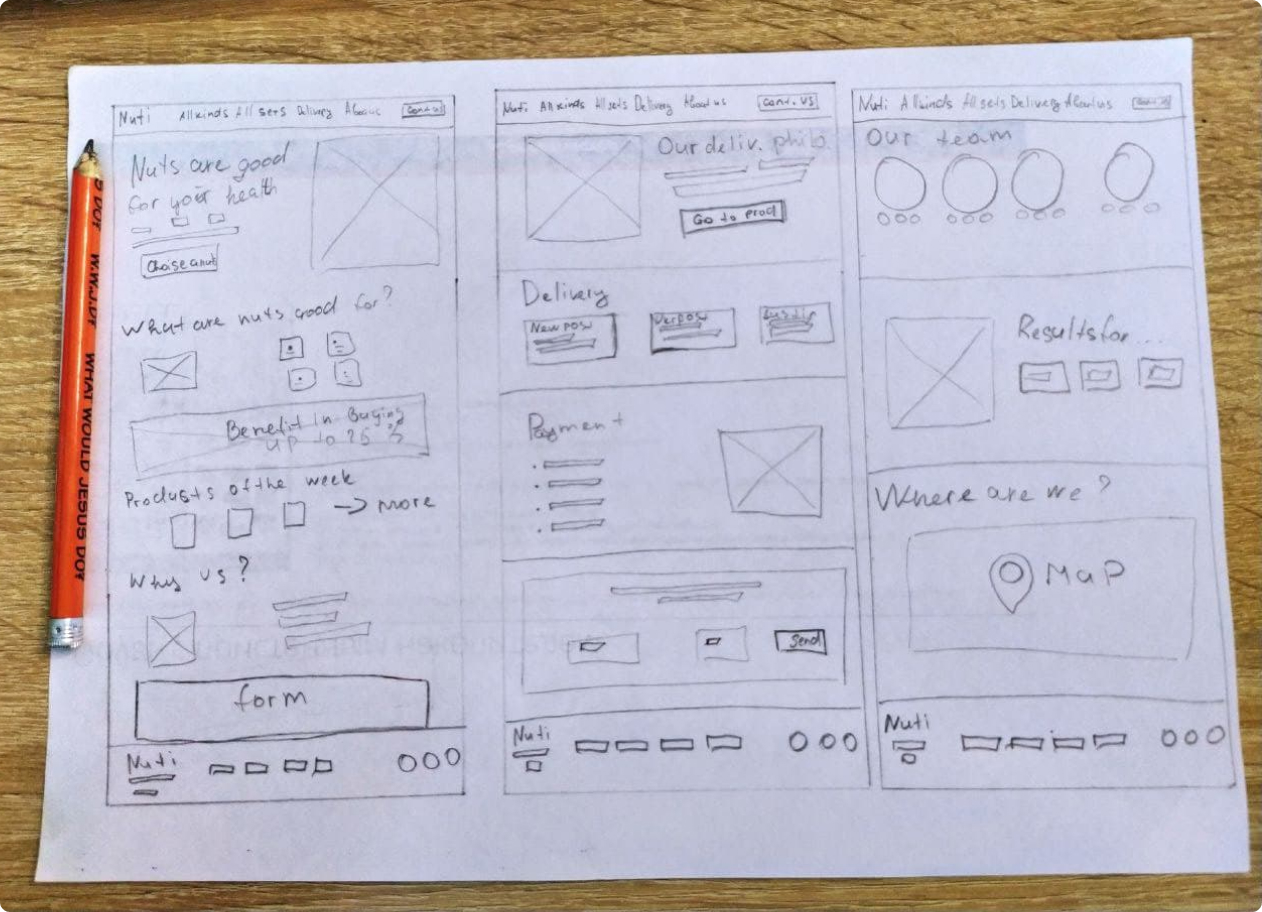 Nuti All kinds All sets Delivery About us Cont. us
Nuts are good
for your health
Choise a nut
What are nuts good for?
Benefit in Buying
up to 25 %
Products of the week
→ more
Why us?
form
Nuti
Nuti All kinds All sets Delivery About us Cont. US
Our deliv. philo.
Go to prod
Delivery
New pos
Payment
Send
Nuti
Nuti All kinds All sets Delivery About us
Our team
Results for...
Where are we?
Map
Nuti
5 DO?
W.W.J.D?
WHAT WOULD JESUS DO?